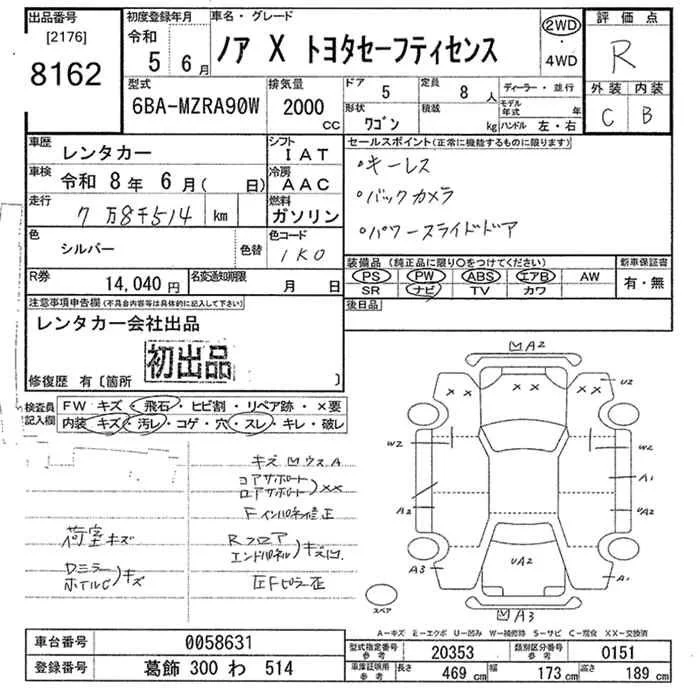 出品番号
[2176]
8162
初度登録年月
令和
5 6月
車名・グレード
ノア X トヨタセーフティセンス
2WD
・
4WD
評価点
R
外装 内装
C B
型式
6BA-MZRA90W
排気量
2000
CC
ドア
5
定員
8 人
形状
ワゴン
積載
kg
ディーラー・並行
モデル年式 年
ハンドル 左・右
車歴
レンタカー
シフト
IAT
車検
令和 8年 6月( 日)
冷房
AAC
走行
7万8千514 km
燃料
ガソリン
色
シルバー
色替
色コード
1K0
R券
14,040円
名変通知期限
月 日
セールスポイント(正常に機能するものに限ります)
・キーレス
・バックカメラ
・パワースライドドア
装備品(純正品に限り○をつけてください)
PS PW ABS エアB AW
SR ナビ TV カワ
新車保証書
有・無
後日品
注意事項申告欄(不具合内容等は具体的に記入して下さい)
レンタカー会社出品
初出品
修復歴 有〔箇所 〕
検査員記入欄
FW キズ・飛石・ヒビ割・リペア跡・×要
内装 キズ・汚レ・コゲ・穴・スレ・キレ・破レ
キズ凹ウスA
コアサポート
ロアサポート)××
Fインパネ修正
荷室キズ
Rフロア
エンドパネル)キズ凹
Dミラー
ホイルC)キズ
A2
××
××
××
U2
W2
W2
A1
A2
UA2
UA2
A3
A1
A3
スペア
A-キズ E-エクボ U-凹み W-補修跡 S-サビ C-腐食 XX-交換済
車台番号
0058631
登録番号
葛飾 300 わ 514
型式指定番号
参考
20353
類別区分番号
参考
0151
車庫証明用
参考
長さ
469 cm
幅
173 cm
高さ
189 cm